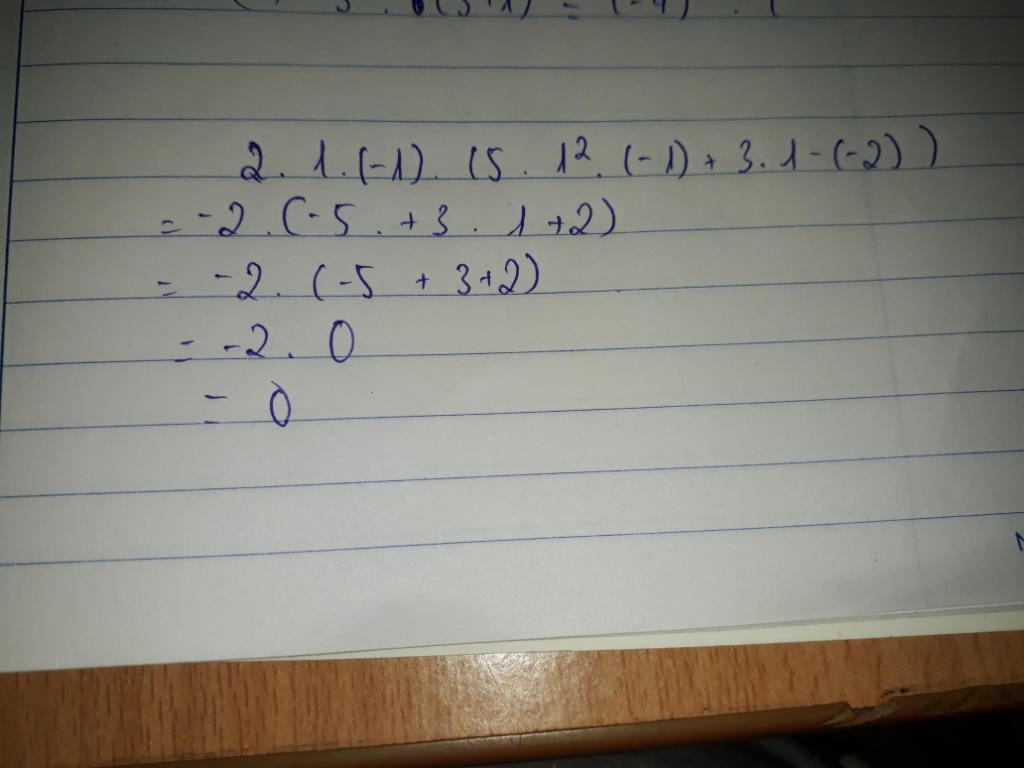 2 . 1 . (-1) . (5 . 1² . (-1) + 3 . 1 - (-2))
= -2 . (-5 . + 3 . 1 + 2)
= -2 . (-5 + 3 + 2)
= -2 . 0
= 0